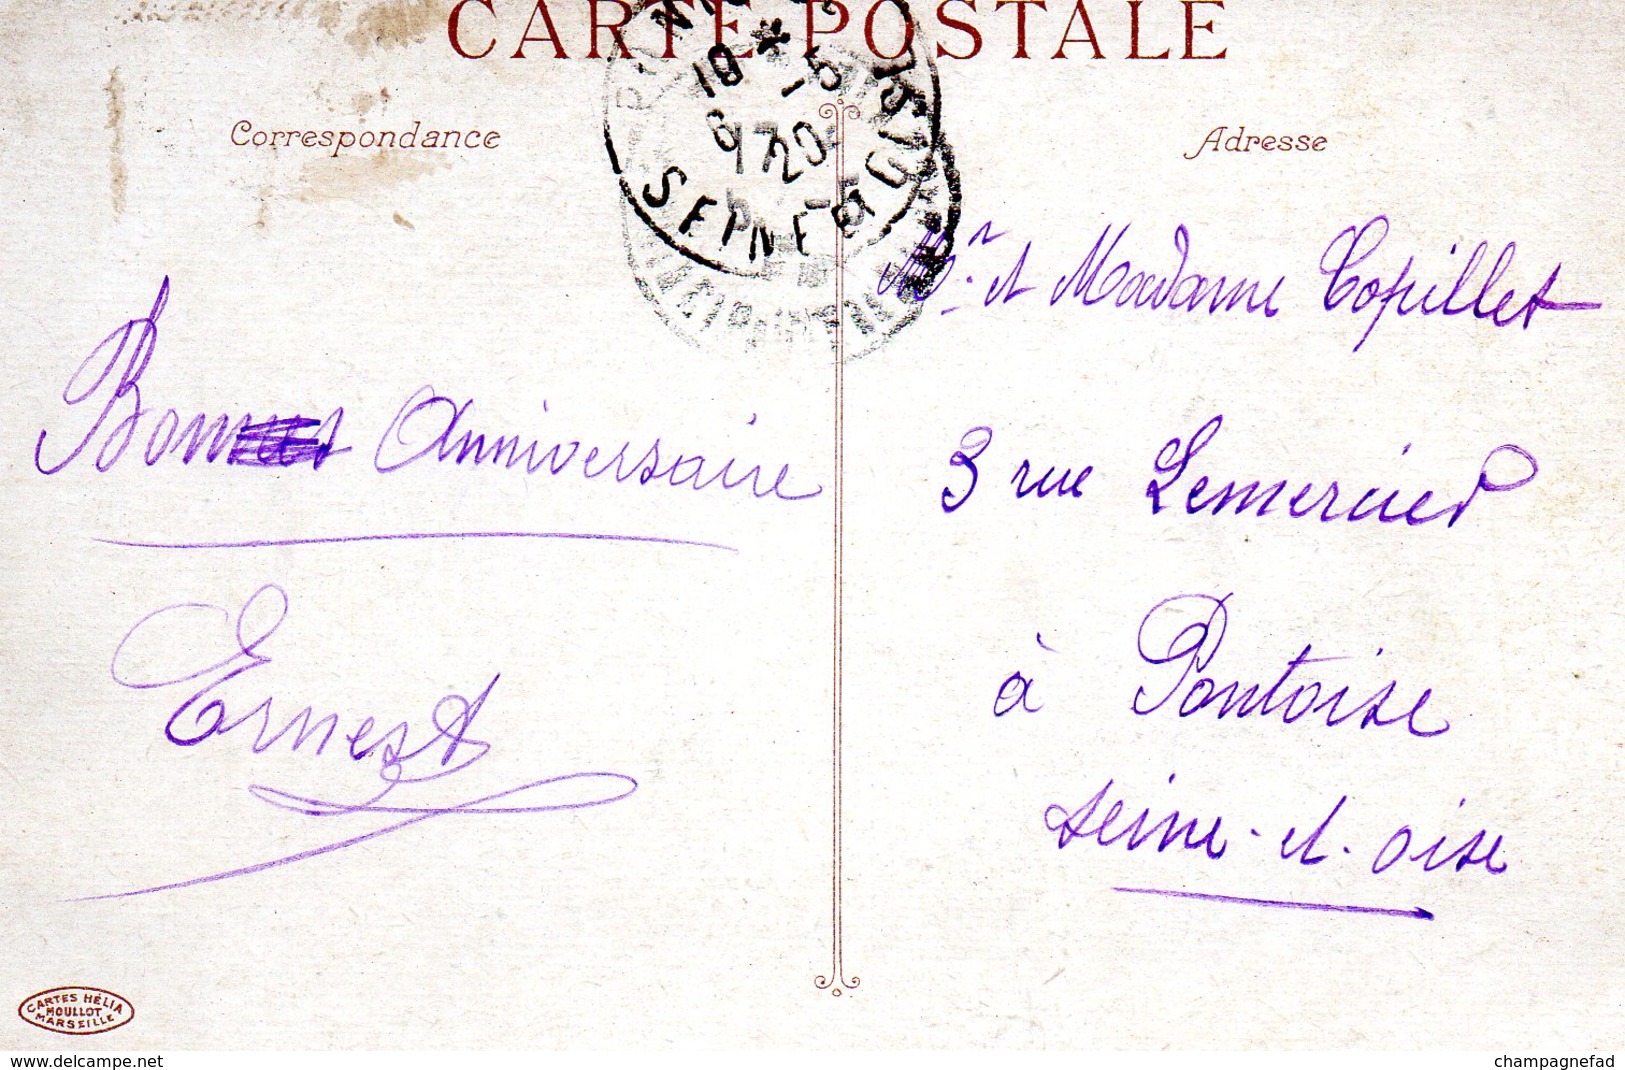 CARTE POSTALE
Correspondance
Adresse
10 * - 5
6 17 20
SEINE
Anniversaire
Ernest
Mr. et Madame Copillet
3 rue Lemercier
à Pontoise
seine-et-oise
CARTES HÉLIA
MOULLOT
MARSEILLE
www.delcampe.net
champagnefad